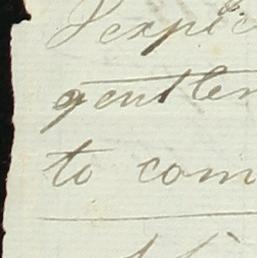 I expec
gentlem
to com